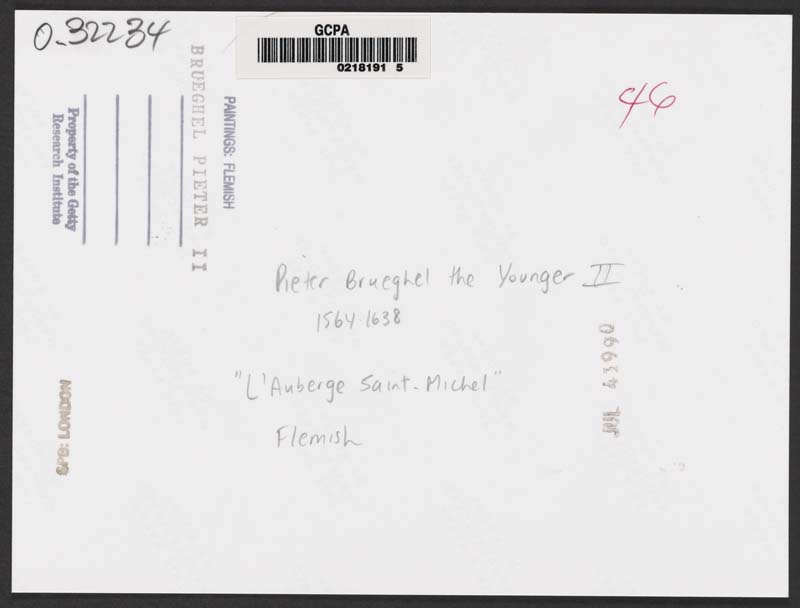 O-32234
GCPA
0218191 5
46
PAINTINGS: FLEMISH
BRUEGHEL PIETER II
Property of the Getty
Research Institute
Pieter Brueghel the Younger II
1564-1638
"L'Auberge Saint-Michel"
Flemish
LONDON